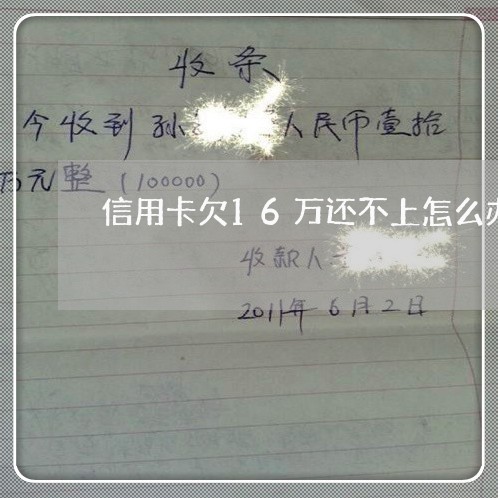 收条
今收到孙 人民币壹拾
万元整(100000)
信用卡欠16万还不上怎么办
收款人
2011年6月2日